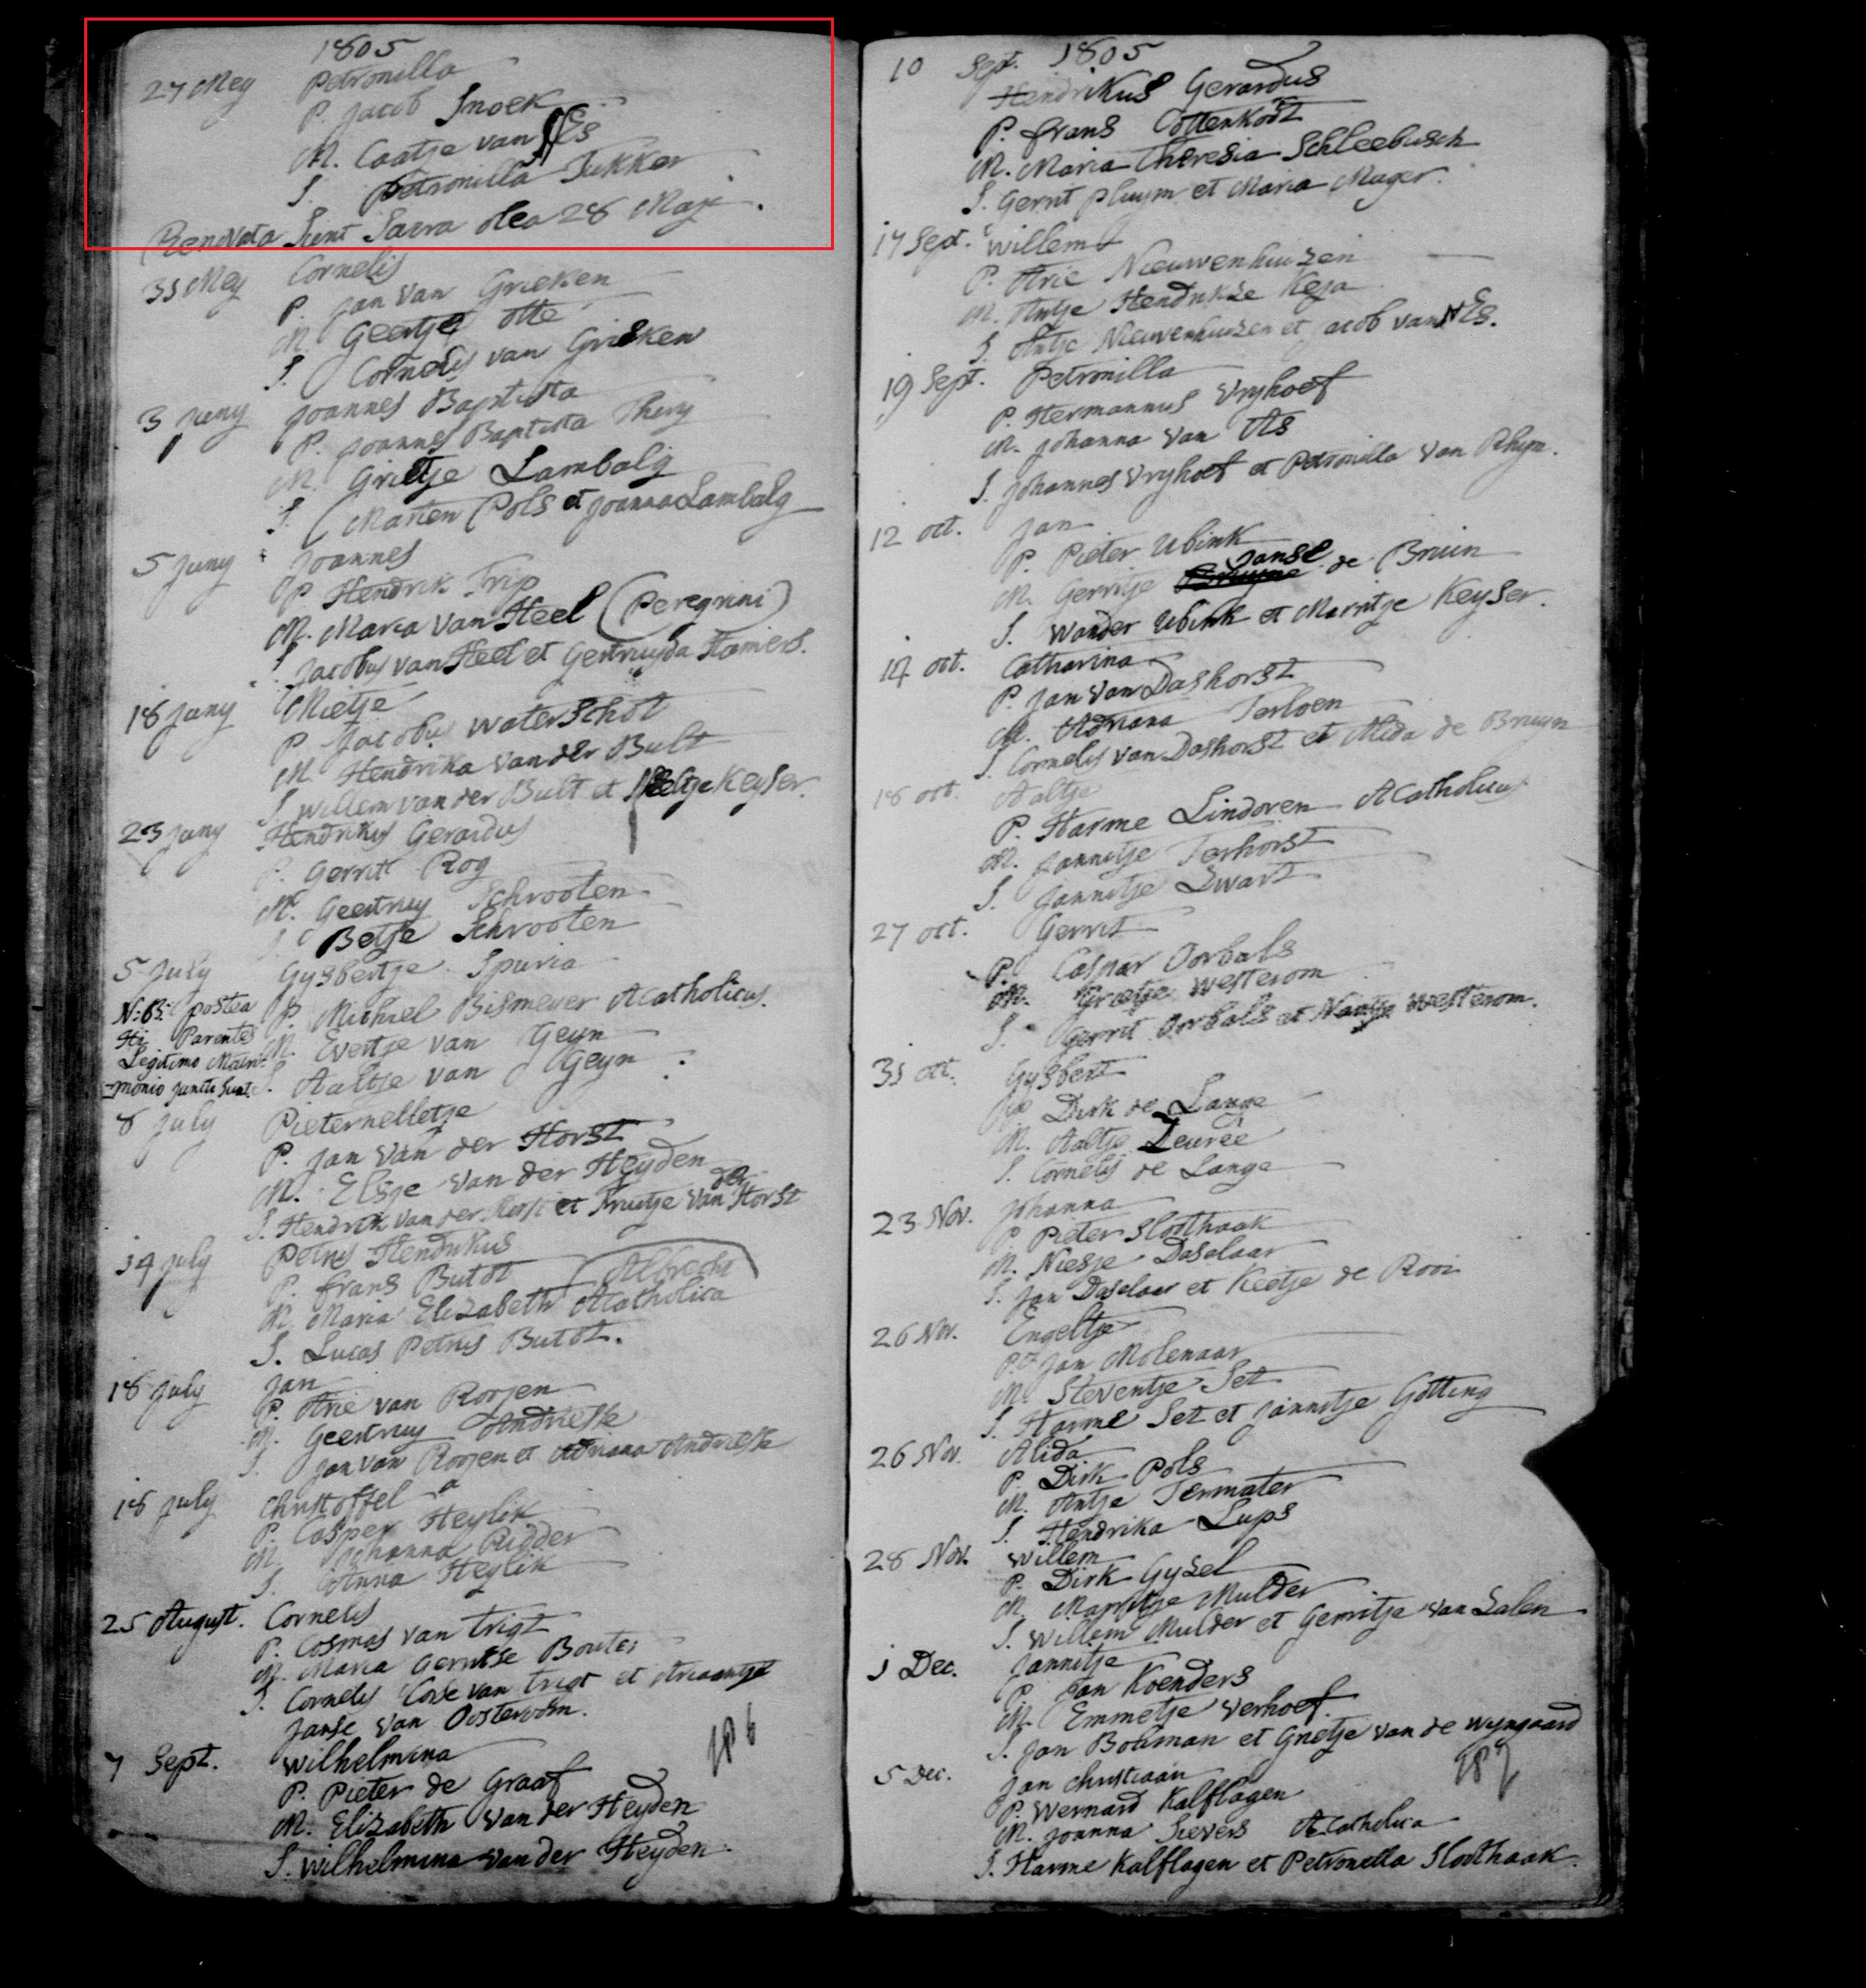 1805
27 Mey Petronilla
P. Jacob Snoek
M. Caatje van Es
S. Petronilla Fukker
Renovata sunt Sacra olea 28 Maji.
31 Mey Cornelis
P. Jan van Grieken
M. Geertje Otte
S. Cornelis van Grieken
3 Juny Joannes Baptista
P. Joannes Baptista Thery
M. Grietje Lambalg
S. Marten Pols et Joanna Lambalg
5 Juny Joannes
P Hendrik Trip
M. Maria van Heel (Peregrini)
S. Jacobus van Heel et Gertruyda Hamers.
18 Juny Mietje
P Jacobus Waterschot
M Hendrika van der Bult
S. Willem van der Bult et Keyser.
23 Juny Hendrikus Gerardus
P. Gerrit Rog
M. Geertruy Schrooten
S. Betje Schrooten
5 July Gysbertje Spuria
N:B: postea P Michiel Bismeyer Acatholicus.
Hi Parentes M. Evertje van Geyn
Legitimo Matri- S. Aaltje van Geyn
-monio juncti sunt.
8 July Pieternelletje
P. Jan van der Horst
M. Elsje van der Heyden
S. Hendrik van der Horst et Truitje van der Horst
14 July Petrus Hendrikus
P. Frans Butot (Albrecht)
M. Maria Elizabeth Acatholica
S. Lucas Petrus Butot.
18 July Jan
P. Arie van Roojen
M. Geertruy Andriesse
S. Jan van Roojen et Adriana Andriesse
18 July Christoffel
P. Casper Heylik
M. Johanna Ridder
S. Anna Heylik
25 August. Cornelis
P. Cosmas van Trigt
M. Maria Gerritse Bouter
S. Cornelis Corse van Trigt et Ariaantje
Janse van Oosterom.
7 Sept. Wilhelmina
P. Pieter de Graaf
M. Elizabeth van der Heyden
S. Wilhelmina van der Heyden.
186
10 Sept. 1805
Hendrikus Gerardus
P. Frans Cottenkost
M. Maria Theresia Schleebusch
S. Gerrit Pluym et Maria Mager.
17 Sept. Willem
P. Arie Nieuwenhuizen
M. Antje Hendrikse Keja
S. Antje Nieuwenhuizen et Jacob van Es.
19 Sept. Petronilla
P. Hermannus Vryhoef
M. Johanna van As
S. Johannes Vryhoef et Petronilla van Rhyn.
12 oct. Jan
P. Pieter Ubink
M. Gerritje Janse de Bruin
S. Wander Ubink et Marritje Keyser.
14 oct. Catharina
P. Jan van Dashorst
M. Adriana Terloen
S. Cornelis van Dashorst et Alida de Bruyn
18 oct. Aaltje
P. Harme Lindoren Acatholicus
M. Jannetje Terhorst
S. Jannetje Swart
27 oct. Gerrit
P. Caspar Oorbals
M. Grietje Westerom
S. Gerrit Oorbals et Westerom.
31 oct. Gysbert
P Dirk de Lange
M. Aaltje Leuree
S. Cornelis de Lange
23 Nov. Johanna
P Pieter Sloothaak
M. Niesje Daselaar
S. Jan Daselaar et Keetje de Rooi
26 Nov. Engeltje
P. Jan Molenaar
M. Steventje Set
S. Harme Set et Jannetje Götting
26 Nov. Alida
P. Dirk Pols
M. Antje Termater
S. Hendrika Lups
28 Nov. Willem
P. Dirk Gysel
M. Marritje Mulder
S. Willem Mulder et Gerritje van Salen
1 Dec. Jannetje
P. Jan Koenders
M. Emmetje Verhoef.
S. Jan Bosman et Grietje van de Wyngaard
5 Dec. Jan Christiaan
P. Wernard Kalflagen
M. Joanna Sievers Acatholica
S. Harme Kalflagen et Petronella Sloothaak.
187